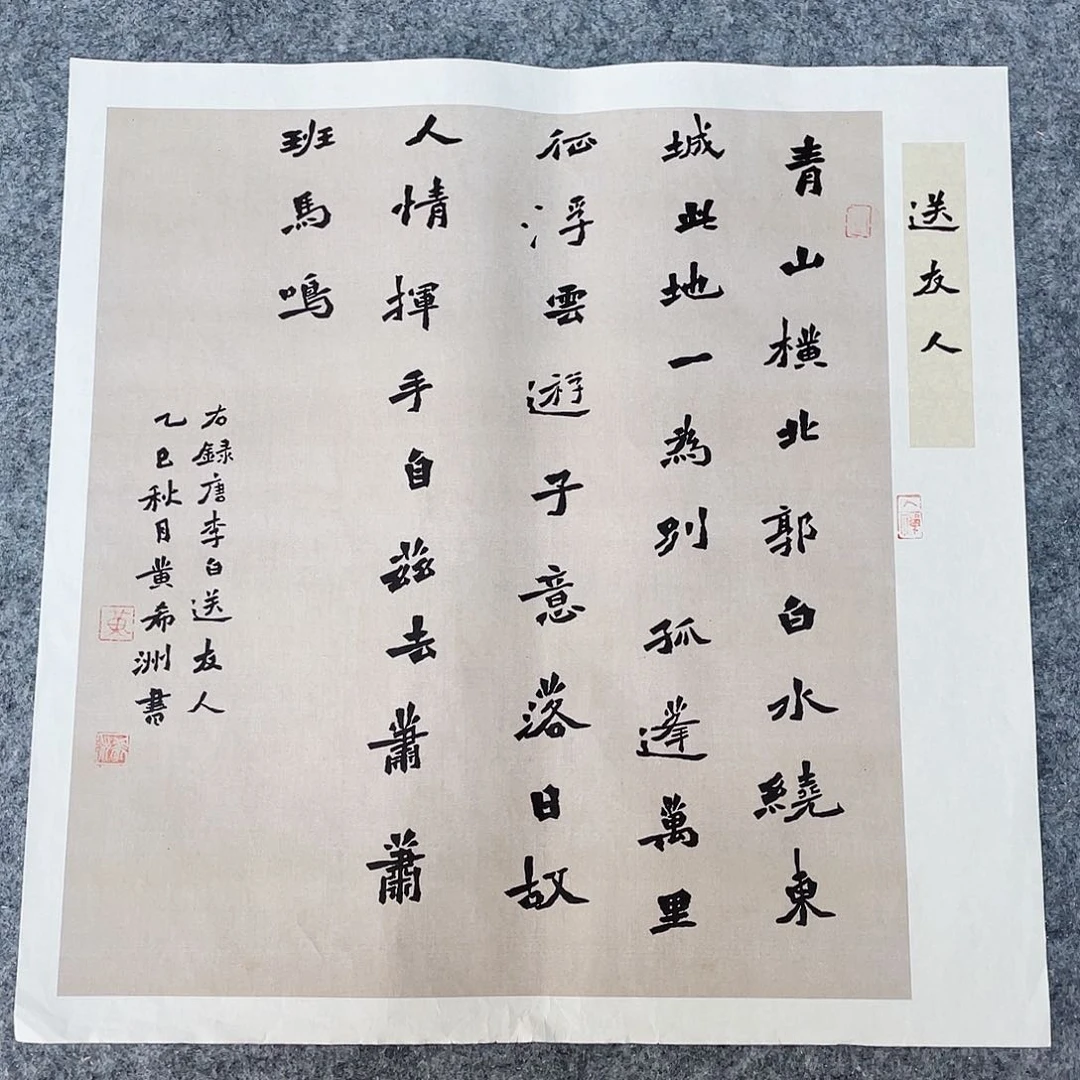 送友人
青山橫北郭白水繞東
城此地一為別孤蓬萬里
征浮雲遊子意落日故
人情揮手自茲去蕭蕭
班馬鳴
右録唐李白送友人
乙巳秋月黄希洲書